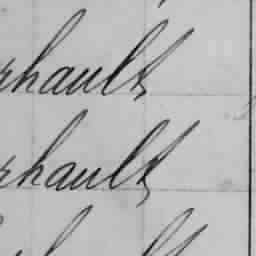 rhault
rhault